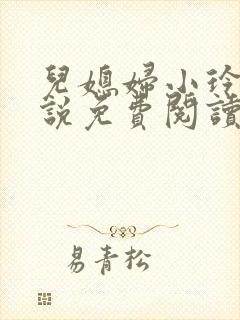 兒媳婦小玲
說免費閱讀
易青松